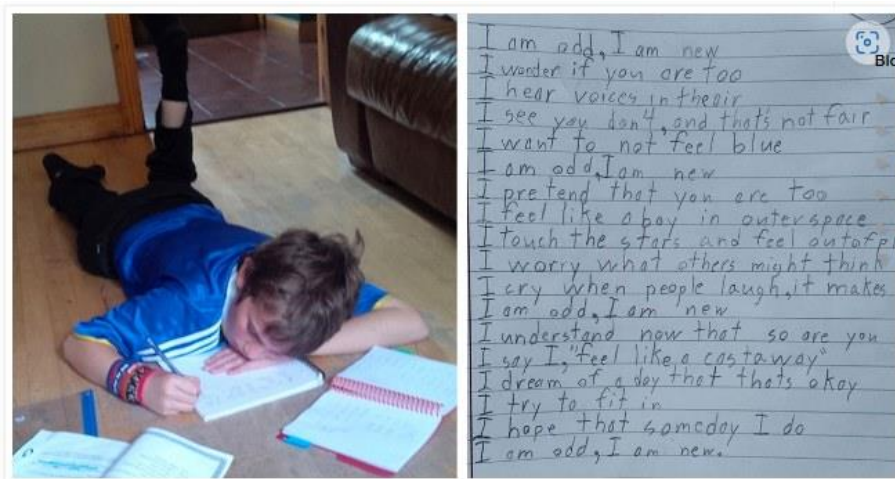 I am odd, I am new
I wonder if you are too
I hear voices in the air
I see you don't, and that's not fair
I want to not feel blue
I am odd, I am new
I pretend that you are too
I feel like a boy in outerspace
I touch the stars and feel out of pl
I worry what others might think
I cry when people laugh, it makes
I am odd, I am new
I understand now that so are you
I say I, "feel like a castaway"
I dream of a day that thats okay
I try to fit in
I hope that someday I do
I am odd, I am new.
Blo